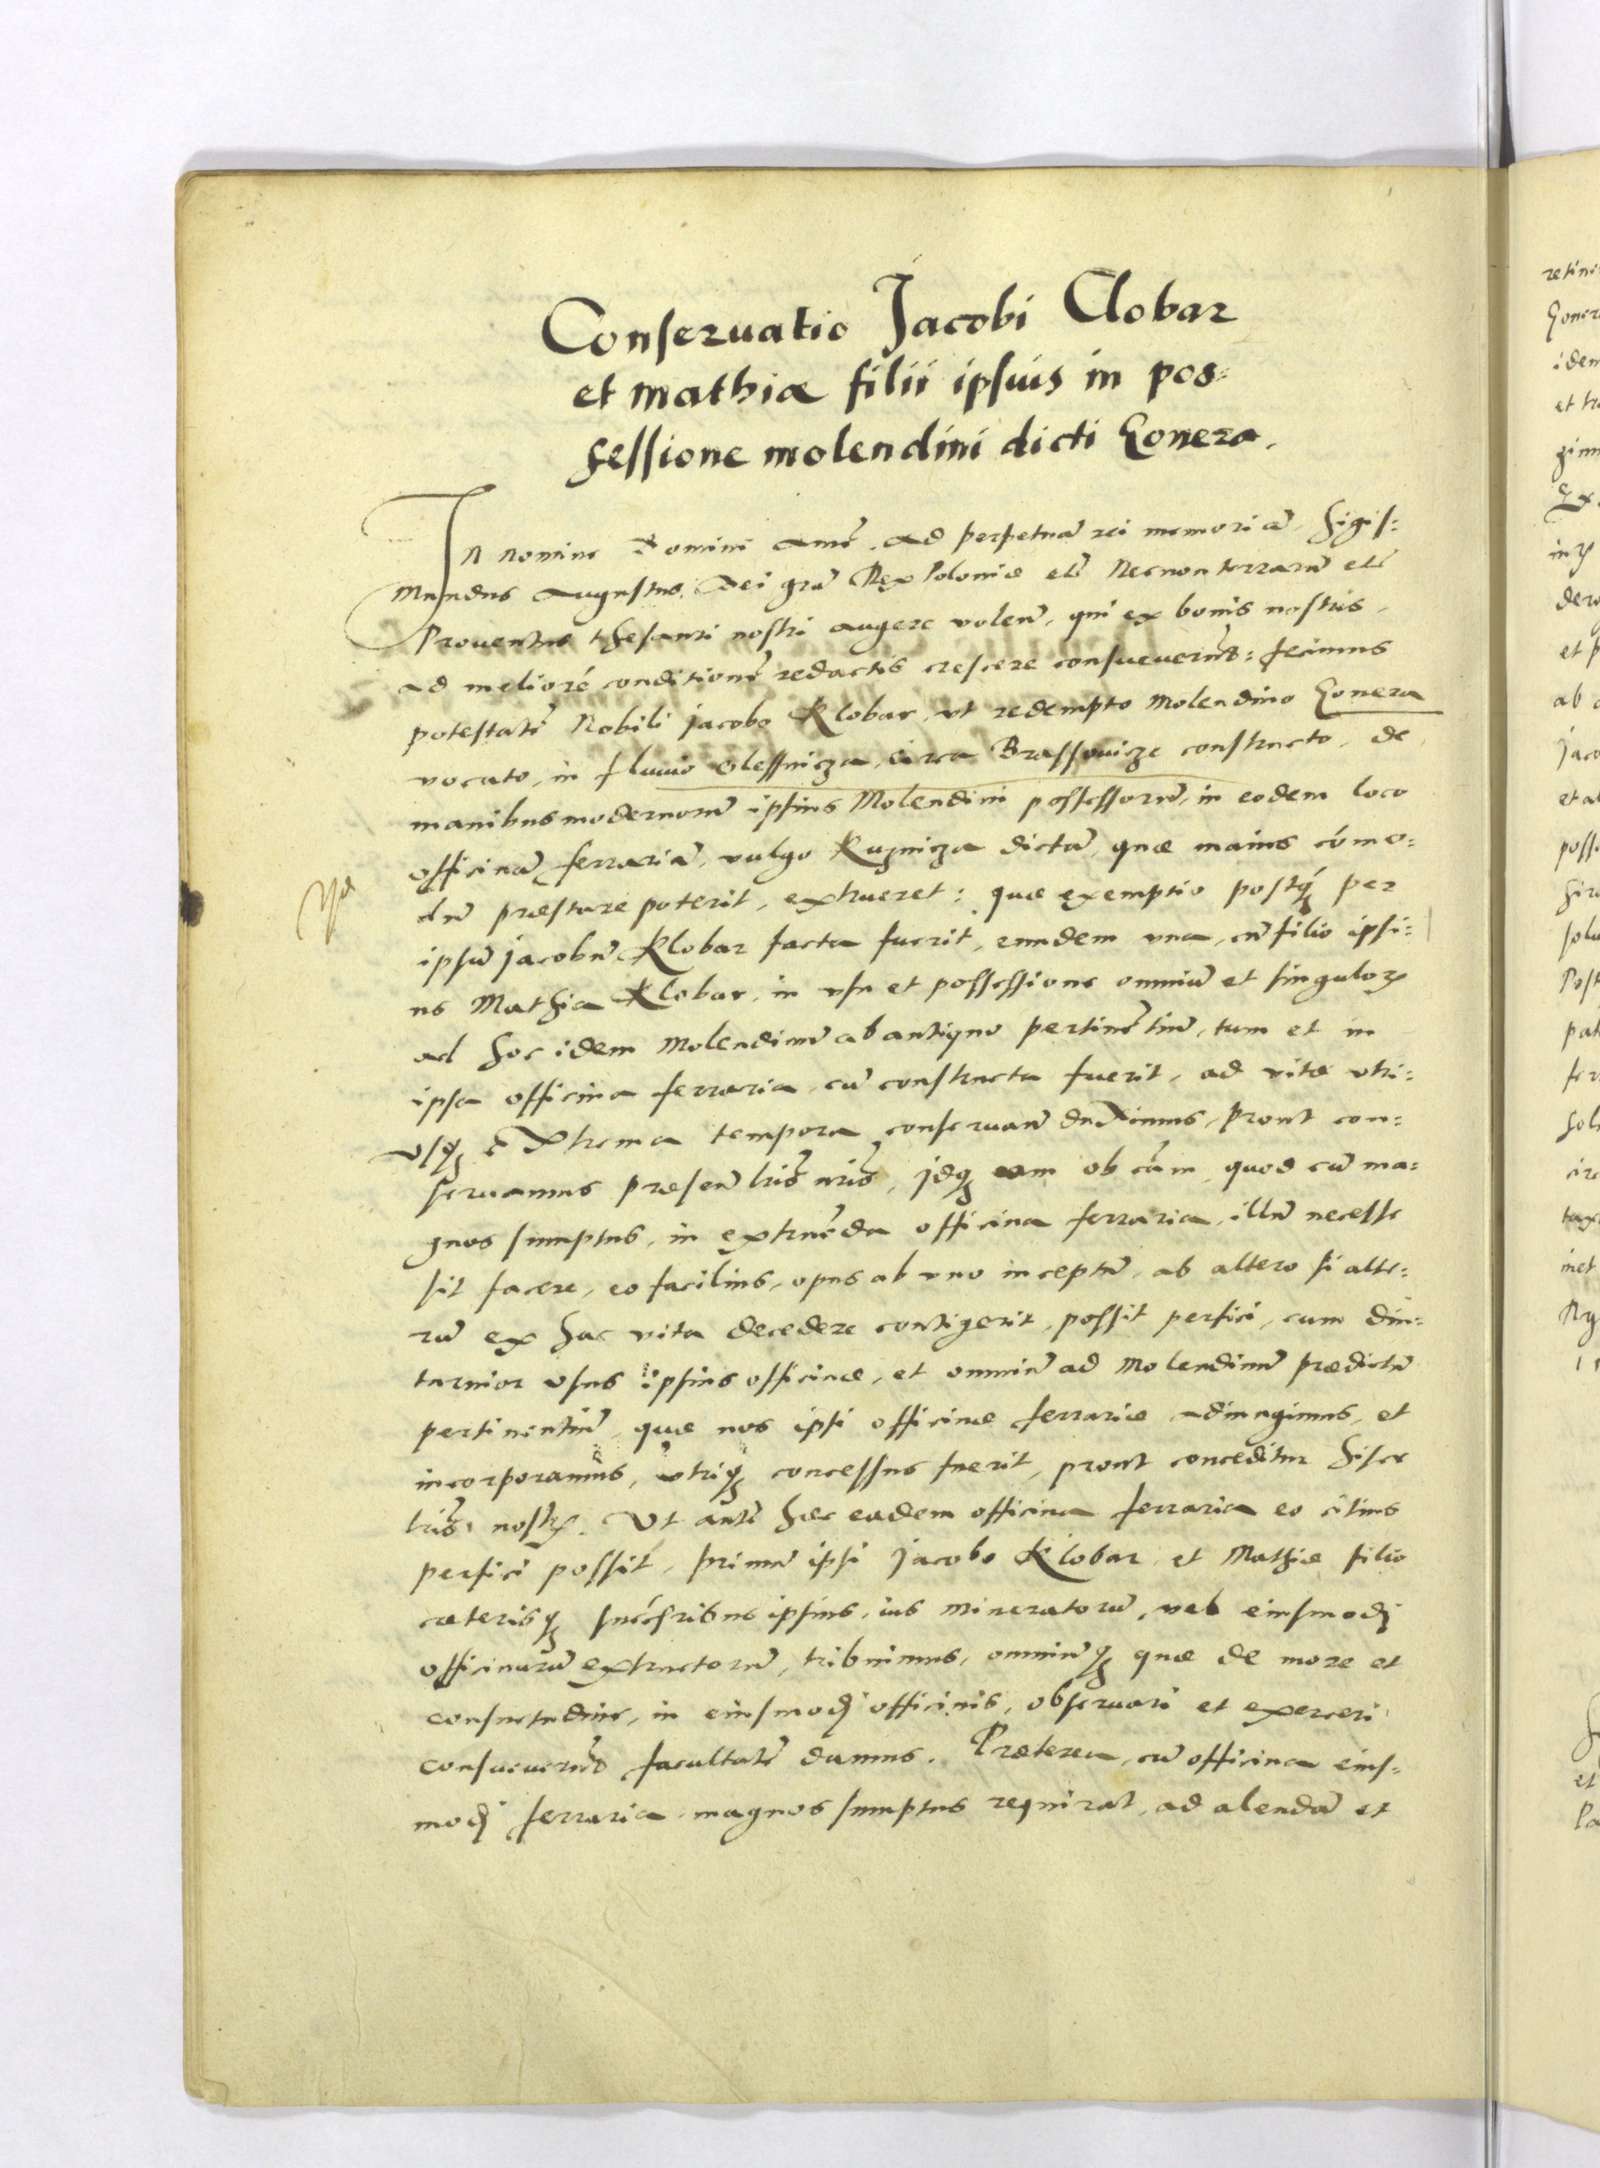 Conseruatio Jacobi Clobar
et Mathiæ filii ipsius in pos:
sessione molendini dicti Gonera.
In nomine Domini amẽ. Ad perpetuã rei memoriã. Sigis:
mundus Augustus Dei grã Rex Poloniæ etc̃ Necnon terrarũ etc̃
Prouentus thesauri nostri augere volen̄, qui ex bonis nostris,
ad meliorẽ conditionẽ redactis crescere consueuerũt: fecimus
potestatẽ Nobili Jacobo Klobar, vt redempto Molendino Gonera
vocato, in fluuio Olessnicza, circa Brassouicze constructo, de
manibus modernorũ ipsius Molendini possessorũ, in eodem loco
officinã ferrariã, vulgo Kuznicza dictã, quæ maius cómo:
dũ præstare poterit, extrueret: quæ exemptio postq̃ per
ipsũ Jacobũ Klobar facta fuerit, eundem vna, cũ filio ipsi:
us Mathia Klobar, in vsu et possessione omniũ et singuloꝝ
ad hoc idem Molendinũ ab antiquo pertinẽtiũ, tum et in
ipsa officina ferraria, cũ constructa fuerit, ad vitæ vtri:
vsqꝫ extrema tempora conseruan̄ duximus, prout con:
seruamus præsen̄ lr̃is nr̃is, idqꝫ eam ob cãm, quod cũ ma:
gnos sumptus, in extruẽda officina ferraria, illũ necesse
sit facere, eo facilius, opus ab vno inceptũ, ab altero si alte:
rũ ex hac vita decedere contigerit, possit perfici, cum diu:
turnior vsus ipsius officinæ, et omniũ ad Molendinũ prædictũ
pertinentiũ, quæ nos ipsi officinæ ferrariæ adiungimus, et
incorporamus, vtriqꝫ concessus fuerit, prout conceditur hisce
lr̃is nostꝝ. Vt autẽ hæc eadem officina ferraria eo citius
perfici possit, primũ ipsi Jacobo Klobar, et Mathiæ filio
cæterisqꝫ succ̃soribus ipsius, ius mineratorũ, vel eiusmodj
officinarũ extructorũ, tribuimus, omniũqꝫ quæ de more et
consuetudine, in eiusmodj officinis, obseruari et exerceri
consueuerũt facultatẽ damus. Præterea, cũ officina eius:
modj ferraria magnos sumptus requirat, ad alendã et